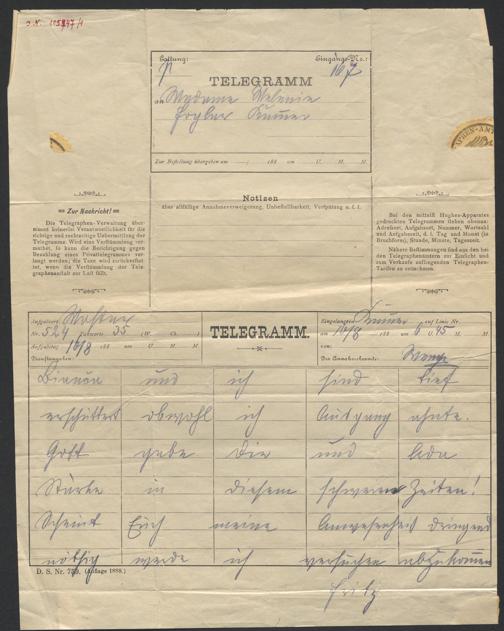 Gattung:
Eingangs-No.:
167
TELEGRAMM
an Madame Melanie
Kummer
Zur Bestellung übergeben am / 188 um U. M. M.
Notizen
über allfällige Annahmeverweigerung, Unbestellbarkeit, Verspätung u. s. f.
Zur Nachricht!
Die Telegraphen-Verwaltung übernimmt keinerlei Verantwortlichkeit für die richtige und rechtzeitige Uebermittlung der Telegramme. Wird eine Verstümmlung vermuthet, so kann die Berichtigung gegen Bezahlung eines Privattelegrammes verlangt werden; die Taxe wird zurückerstattet, wenn die Verstümmlung der Telegraphenanstalt zur Last fällt.
Bei den mittelst Hughes-Apparates gedruckten Telegrammen stehen obenan: Adreßort, Aufgabsort, Nummer, Wortzahl und Aufgabszeit, d. i. Tag und Monat (in Bruchform); Stunde, Minute, Tageszeit.
Nähere Bestimmungen sind aus den bei den Telegraphenämtern zur Einsicht und zum Verkaufe aufliegenden Telegraphen-Tarifen zu entnehmen.
Aufgabsort:
Nr. 524 Taxworte 35 (W. Ch. )
Aufgabstag: 16/8 um U. M. M.
Dienstangaben:
TELEGRAMM.
Eingelangt von Kummer auf Linie Nr.
am 16/8 um 6 U. 45 M.
Der Annahmebeamte:
Bianca und ich sind tief
erschüttert obwohl ich Ausgang ahnte.
Gott gebe Dir und
Stärke in diesem schweren Zeiten!
Scheint Erich meine Anwesenheit dringend
nöthig werde ich versuchen abzukommen
D. S. Nr. 729. (Auflage 1888.)
Fritz